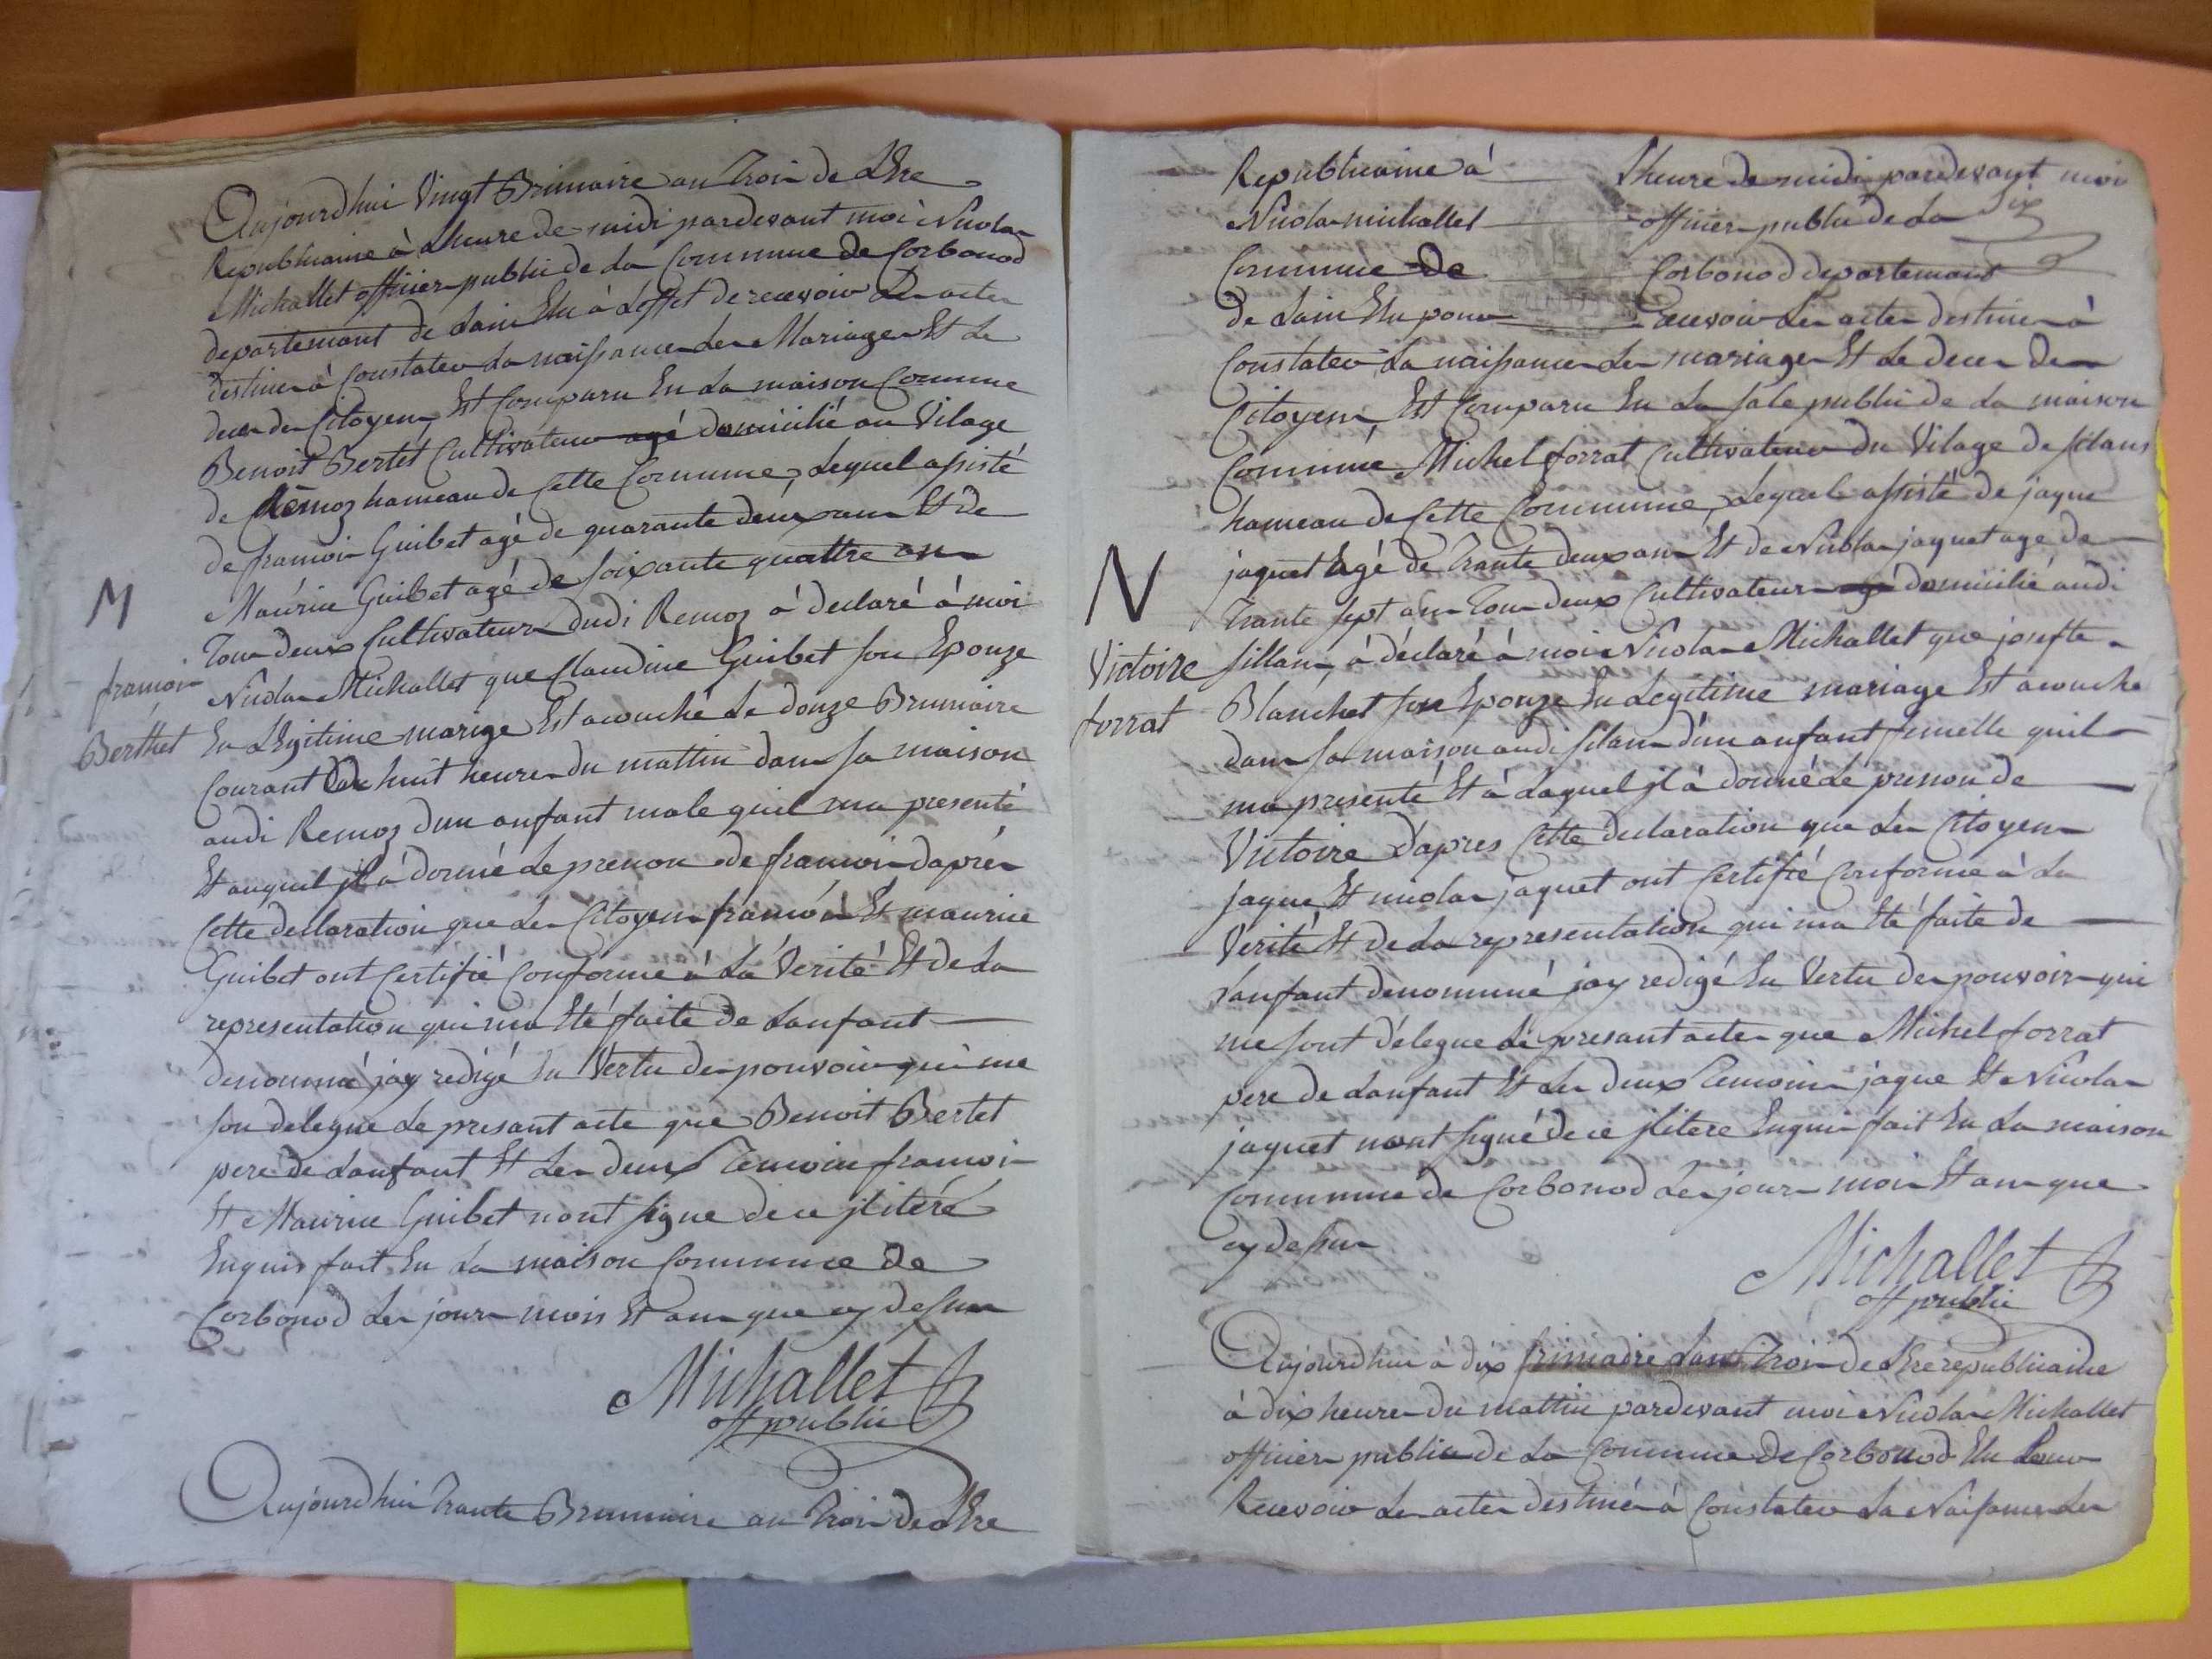 Aujourdhui Vingt Brumaire an Trois de Lhre
Republicaine à Lheure de midi pardevant moi Nicolas
Michallet officier public de La Commune de Corbonod
departemant de Lain Elu à Leffet de recevoir Les actes
destiner à Constater La naissance Les Mariages Et Le
deces des Citoyens, Est Comparu En La maison Commune
Benoit Bertet Cultivateur agé domicilié au Vilage
de Rémoz hameau de Cette Commune, Lequel assisté
de francois Guibet agé de quarante deux ans Et de
Maurice Guibet agé de soixante quattre ans
Tous deux Cultivateurs dudi Remoz à declaré à moi
Nicolas Michallet que Claudine Guibet son Epouze
En Legitime marige Est acouché Le douze Brumaire
Courant de huit heures du mattin dans sa maison
audi Remoz dun anfant male quil ma presenté
Et auquel jl à donné Le prenon de francois daprés
Cette declaration que Les Citoyens francois Et maurice
Guibet ont Certifié Conforme à La Verité Et de La
representation qui ma Eté faite de Lanfant
denommé jay redigé En Vertu des pouvoirs qui me
son delegue Le presant acte que Benoit Bertet
pere de Lanfant Et Les deux Temoins francois
Et Maurice Guibet nont signe de ce jlitéré
Enquis fait En La maison Commune de
Corbonod Les jours mois Et ans que cy dessus
Michallet
off public
Aujourdhui Trante Brumaire an Trois de Lhre
M
francois
Berthet
Republicaine à Lheure de midi pardevant moi
Nicolas michallet officier public de La
Six
Commune de Corbonod departemant
de Lain Elu pour Recevoir Les actes destiner à
Constater La naissance Les mariages Et Le deces des
Citoyens, Est Comparu En La sale public de La maison
Commune Michel forrat Cultivateur du Vilage de silans
hameau de Cette Commune, Lequel assisté de jaque
jaquet agé de Trante deux ans Et de Nicolas jaquet age de
Trante sept ans Tous deux Cultivateurs agé domicilié audi
sillans, à déclaré à moi Nicolas Michallet que josefte
Blanchet son Epouze En Legitime mariage Est acouché
dans sa maison audi silans d'un anfant femelle quil
ma presenté Et à Laquel jl à donné Le prenon de
Victoire d'apres Cette declaration que Les Citoyens
jaque Et nicolas jaquet ont Certifié Conforme à La
Verité Et de La representation qui ma Eté faite de
Lanfant denommé jay redigé En Vertu des pouvoirs qui
me sont délegue Le presant actes que Michel forrat
pere de Lanfant Et Les deux Temoins jaque Et Nicolas
jaquet nont signé de ce jlitere Enquis fait En La maison
Commune de Corbonod Les jours mois Et ans que
cy dessus
Michallet
off public
Aujourdhui à dix frimaire Lans Trois de Lhre republicaine
à dix heures du mattin pardevant moi Nicolas Michallet
officier public de La Commune de Corbonod Elu Pour
Recevoir Les actes destinés à Constater La Naissance Les
N
Victoire
forrat